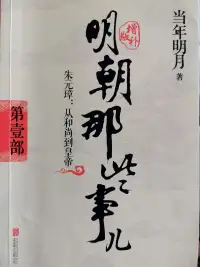 当年明月 著
增补版
明朝那些事儿
朱元璋：从和尚到皇帝
第壹部